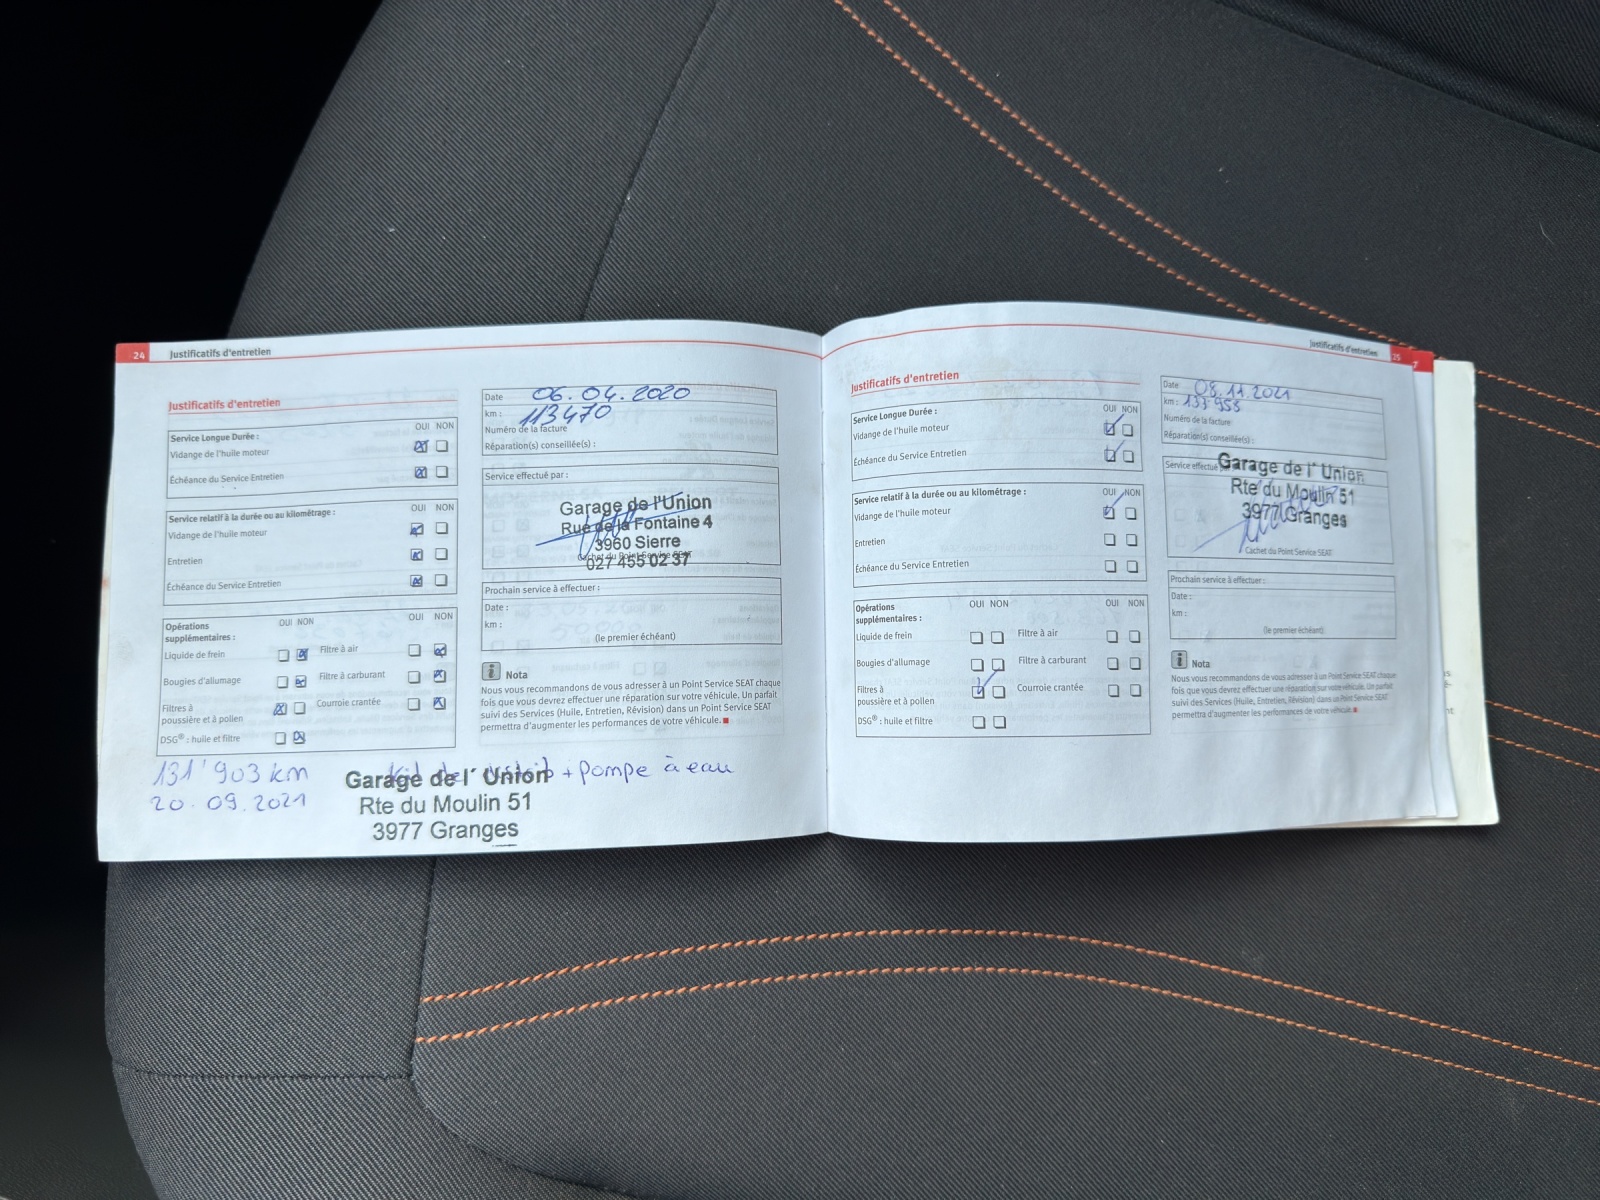 24 Justificatifs d'entretien
Justificatifs d'entretien
Service Longue Durée :
OUI NON
Vidange de l'huile moteur
Échéance du Service Entretien
Service relatif à la durée ou au kilométrage :
OUI NON
Vidange de l'huile moteur
Entretien
Échéance du Service Entretien
Opérations supplémentaires :
OUI NON
OUI NON
Liquide de frein
Filtre à air
Bougies d'allumage
Filtre à carburant
Filtres à
poussière et à pollen
Courroie crantée
DSG® : huile et filtre
131'903 km
20.09.2021
Kit de distrib + pompe à eau
Garage de l'Union
Rte du Moulin 51
3977 Granges
Date 06.04.2020
km : 113470
Numéro de la facture
Réparation(s) conseillée(s) :
Service effectué par :
Garage de l'Union
Rue de la Fontaine 4
3960 Sierre
Cachet du Point Service SEAT
027 455 02 37
Prochain service à effectuer :
Date :
km :
(le premier échéant)
Nota
Nous vous recommandons de vous adresser à un Point Service SEAT chaque
fois que vous devrez effectuer une réparation sur votre véhicule. Un parfait
suivi des Services (Huile, Entretien, Révision) dans un Point Service SEAT
permettra d'augmenter les performances de votre véhicule.
Justificatifs d'entretien 25
Justificatifs d'entretien
Service Longue Durée :
OUI NON
Vidange de l'huile moteur
Échéance du Service Entretien
Service relatif à la durée ou au kilométrage :
OUI NON
Vidange de l'huile moteur
Entretien
Échéance du Service Entretien
Opérations
supplémentaires :
OUI NON
OUI NON
Liquide de frein
Filtre à air
Bougies d'allumage
Filtre à carburant
Filtres à
poussière et à pollen
Courroie crantée
DSG® : huile et filtre
Date 08.11.2021
km : 133'958
Numéro de la facture
Réparation(s) conseillée(s) :
Service effectué
Garage de l'Union
Rte du Moulin 51
3977 Granges
Cachet du Point Service SEAT
Prochain service à effectuer :
Date :
km :
(le premier échéant)
Nota
Nous vous recommandons de vous adresser à un Point Service SEAT chaque
fois que vous devrez effectuer une réparation sur votre véhicule. Un parfait
suivi des Services (Huile, Entretien, Révision) dans un Point Service SEAT
permettra d'augmenter les performances de votre véhicule.